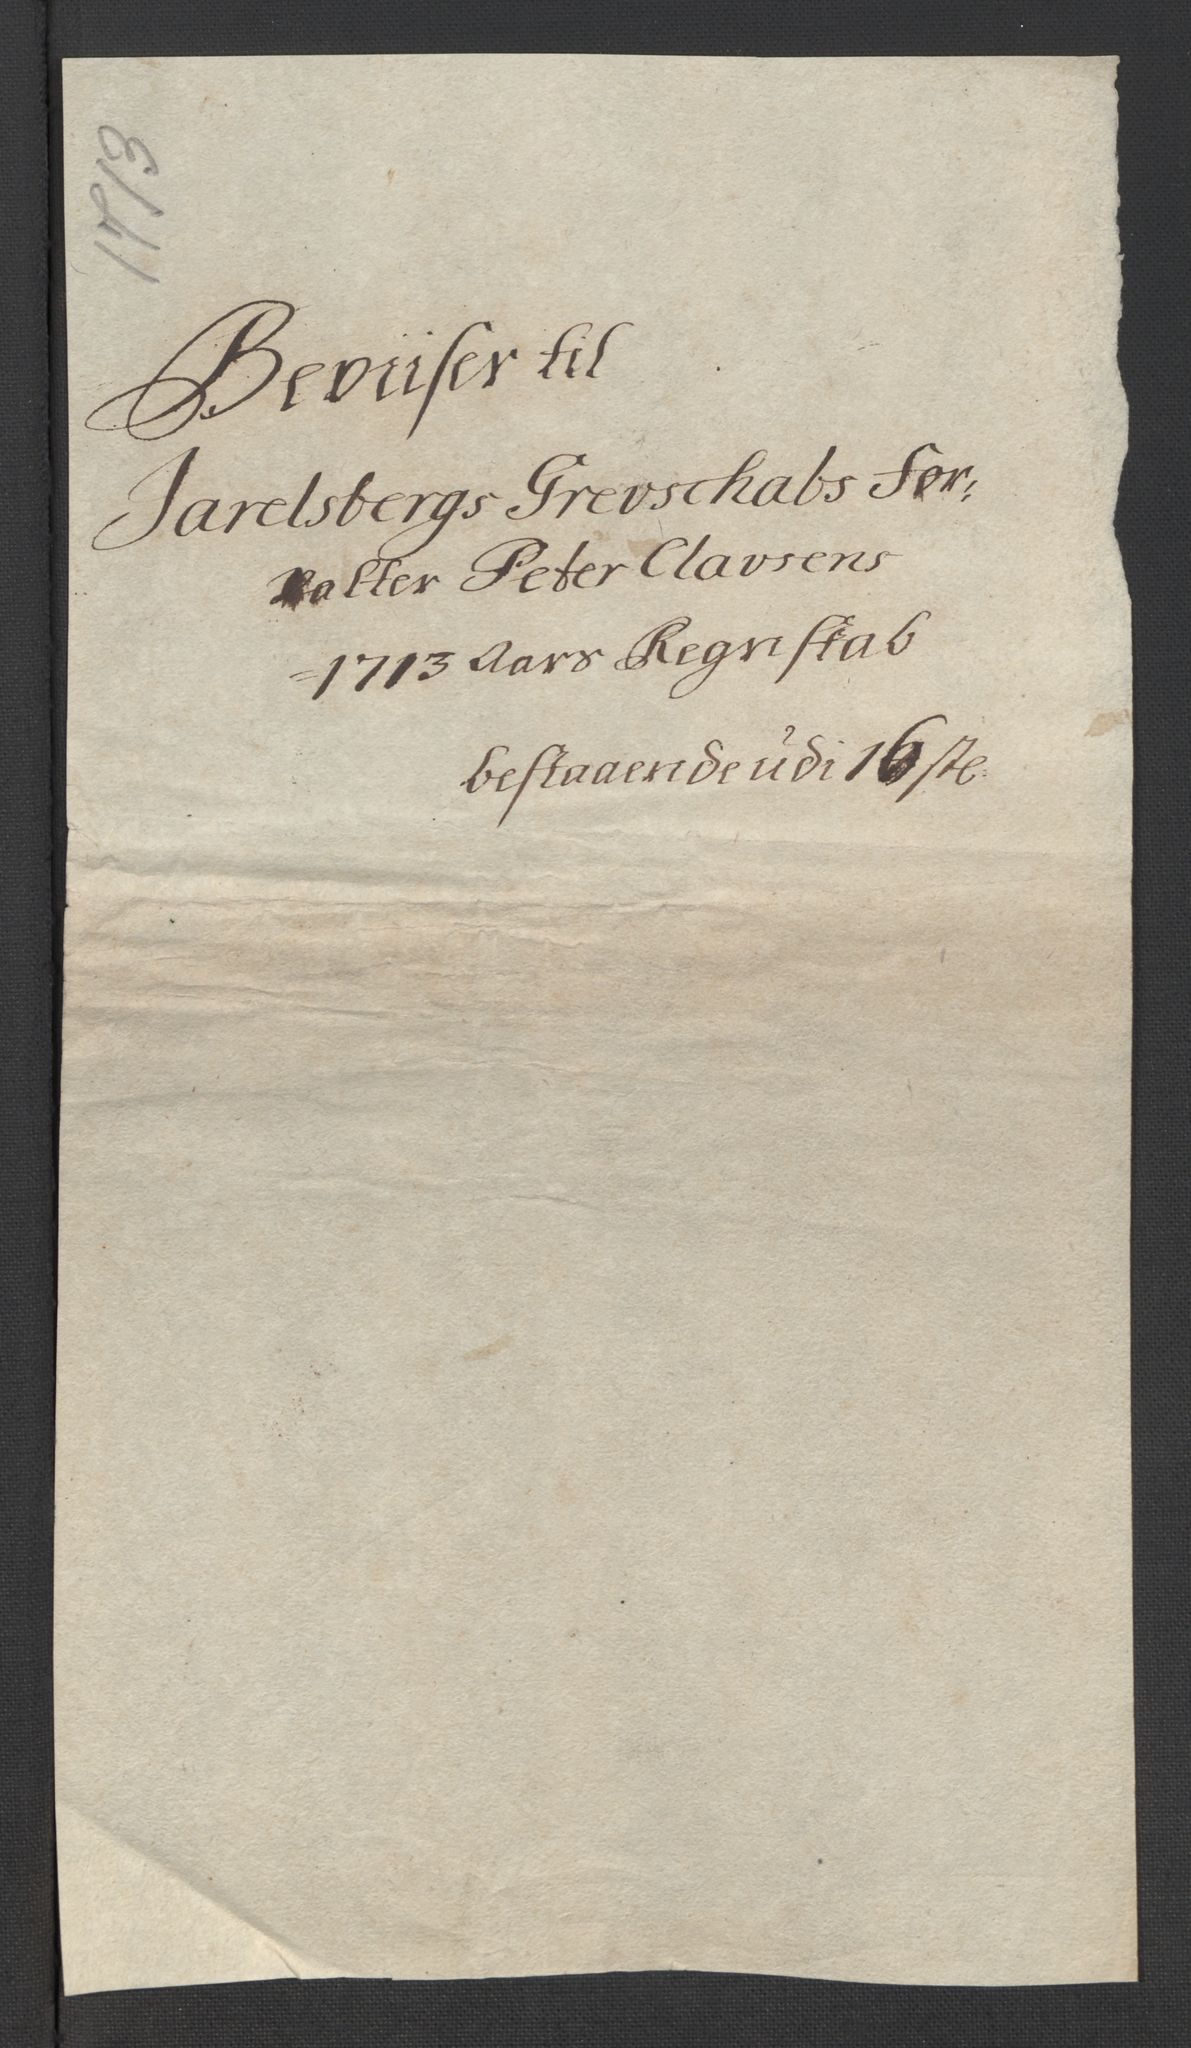 1713
Beviiser til
Jarelsbergs Grevschabs For:
valter Peter Clavsens
1713 Aars Regnskab
bestaaende udi 16 ste: